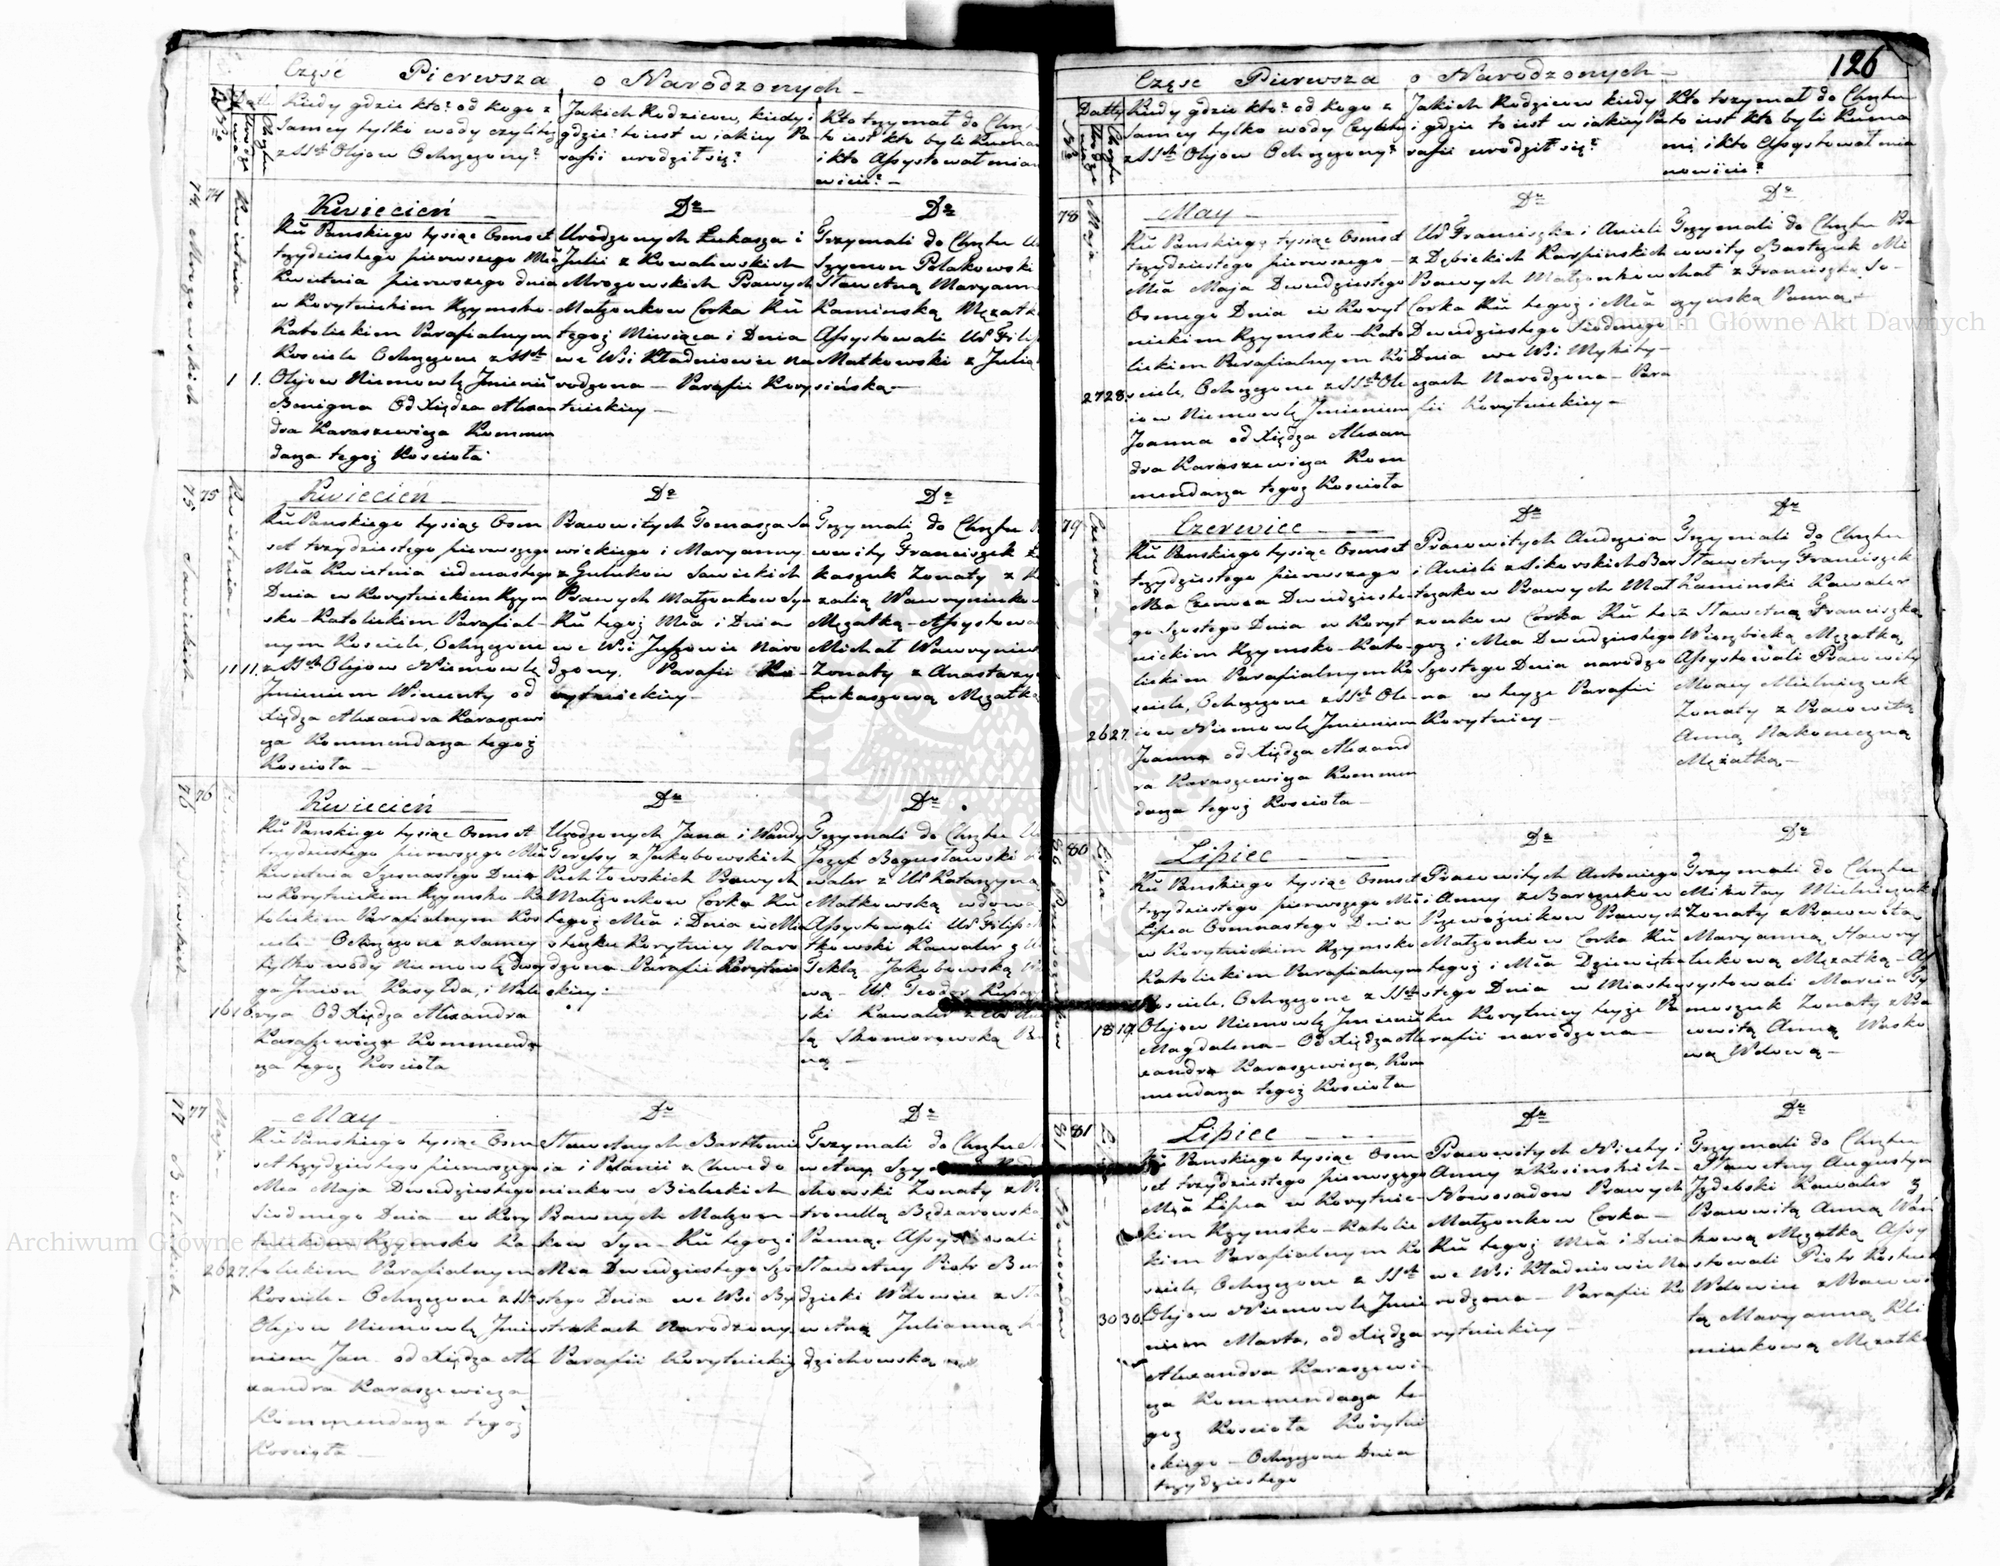 Część Pierwsza o Narodzonych
Kiedy gdzie kto? od kogo z
samey tylko wody czyli też
z SSch Olejow Ochrzczony?
Jakich Rodzicow, kiedy i
gdzie? to iest w iakiey Pa
rafii urodził się?
Kto trzymał do Chrz-
to iest kto byli Kuma
i kto Assystował mian
wicie?
74
74 Mrozowskich
Kwietnia
1 1.
Kwiecień
Ru Panskiego tysiąc Osmset
trzydziestego pierwszego Mca
Kwietnia pierwszego dnia
w Korytnickim Rzymsko
Katolickim Parafialnym
Kosciele Ochrzczone z SSch
Olejow Niemowlę Jmieniem
Benigna Od Xiędza Alexan
dra Karaszewicza Kommen
darza tegoż Kościoła
Dto
Urodzonych Łukasza i
Julii z Kowalewskich
Mrozowskich Prawych
Małzonkow Corka Ru
tegoż Miesiąca i Dnia
we Wsi Kładniowie na
rodzona - Parafii Kory
tnickiey
Dto
Trzymali do Chrztu
Szymon Polakowski
Sławetną Maryann
Kaminską Męzatk
Assystowali Ur Filip
Matkowski z Julią
sińską
75
75 Sawickich
Kwietnia
11 11.
Kwiecień
Ru Panskiego tysiąc Osm
set trzydziestego pierwszego
Mca Kwietnia iedenastego
Dnia w Korytnickim Rzym
sko-Katolickim Parafial-
nym Kosciele, Ochrzczone
z SSch Olejow Niemowlę
Jmieniem Wincenty od
Xiędza Alexandra Karaszewi
cza Kommendarza tegoż
Kościoła
Dto
Pracowitych Tomasza Sa
wickiego i Maryanny
z Gulukow Sawickich
Prawych Małzonkow Sy
Ru tegoż Mca i Dnia
we Wsi Juszowie Naro
dzony. Parafii Ko-
rytnickiey
Dto
Trzymali do Chrztu
cowity Franciszek
kaszuk Zonaty z
zalią Wawryniuko
Męzatką - Assystowa
Michał Wawryniu
Zonaty z Anastazy
Łukaszową Męzatką
76
76
16 16.
Kwiecień
Ru Panskiego tysiąc Osmset
trzydziestego pierwszego Mca
Kwietnia Szesnastego Dnia
w Korytnickim Rzymsko Ka
tolickim Parafialnym Kos
ciele - Ochrzczone z samey
tylko wody Niemowlę dwoy
ga Jmion Kasylda, i Wale
rya Od Xiędza Alexandra
Karaszewicza Kommenda
rza tegoż Kościoła
Dto
Urodzonych Jana i Wandy
Teressy z Jakubowskich
Puchłowskich Prawych
Małzonkow Corka Ru
tegoż Mca i Dnia w Mia
steczku Korytnicy Naro
dzona Parafii Korytnic
kiey.
Dto
Trzymali do Chrztu
Jozef Bogusławski
waler z Ur Katarzyną
Matkowską wdową
Assystowali Ur Filip
tkowski Kawaler z
Teklą Jakubowską
wą - Ur. Teodor
ski Kawaler
lą Skomorowską Pa
ną -
77
77 Bieleckich
Maja
26 27.
May
Ru Panskiego tysiąc Osm
set trzydziestego pierwszego
Mca Maja Dwudziestego
Siodmego Dnia - w Kory
tnickim Rzymsko Ka
tolickim Parafialnym
Kosciele - Ochrzczone z SSch
Olejow Niemowlę Jmie
niem Jan od Xiędza Ale
xandra Karaszewicza
Kommendarza tegoż
Kościoła
Dto
Sławetnych Bartłomie
ia i Polanii z Chwedo
niukow Bieleckich
Prawnych Małzon-
kow Syn - Ru tegoż i
Mca Dwudziestego Szo
stego Dnia we Wsi By
strakach Narodzony,
Parafii Korytnickiey
Dto
Trzymali do Chrztu
wetny Szym
chowski Zonaty z P
tronellą Będzarowską
Panną. Assystowali
Sławetny Piotr B
dzicki Wdowiec z
wetną Julianną
dzichowską
126
Część Pierwsza o Narodzonych
Datty
Kiedy gdzie kto? od kogo z
samey tylko wody Czyli też
z SSch Olejow Ochrzczony?
Jakich Rodzicow kiedy
i gdzie to iest w iakiey Pa
rafii urodził się?
Kto trzymał do Chrztu
to iest kto byli Kuma
mi i kto Assystował mia
nowicie?
78
Maja
27 28.
May
Ru Panskiego tysiąc Osmset
trzydziestego pierwszego
Mca Maja Dwudziestego
Osmego Dnia w Koryt
nickim Rzymsko-Kato
lickim Parafialnym Ko
sciele, Ochrzczone z SSch Ole
iow Niemowlę Jmieniem
Joanna od Xiędza Alexan
dra Karaszewicza Kom
mendarza tegoż Kościoła
Dto
Ur Franciszka i Anieli
z Dębickich Karpinskich
Prawych Małzonkow
Corka Ru tegoż i Mca
Dwudziestego Siodmego
Dnia we Wsi Mykity-
czach Narodzona - Para
fii Korytnickiey
Dto
Trzymali do Chrztu Pra
cowity Bartczuk Mi
chał z Franciszką So-
czynską Panną
79
Czerwca
26 27.
Czerwiec
Ru Panskiego tysiąc Osmset
trzydziestego pierwszego
Mca Czerwca Dwudzieste-
go Szostego Dnia w Koryt
nickim Rzymsko-Kato-
lickim Parafialnym Ko
sciele, Ochrzczone z SSch Ole-
iow Niemowlę Jmieniem
Joanna od Xiędza Alexand
ra Karaszewicza Kommen
darza tegoż Kościoła
Dto
Pracowitych Andrzeia
i Anieli z Sikorskich Bar
tczakow Prawych Mał
zonkow Corka Ru te-
goż i Mca Dwudziestego
Szostego Dnia narodzo
na w teyże Parafii
Korytnicy
Dto
Trzymali do Chrztu
Sławetny Franciszek
Kaminski Kawaler
z Sławetną Franciszką
Wierzbicką Męzatką
Assystowali Pracowity
Maciey Mielniczuk
Zonaty z Pracowitą
Anną Nakonieczną
Męzatką
80
80 Przewoznikow
Lipca
18 19.
Lipiec
Ru Panskiego tysiąc Osmset
trzydziestego pierwszego Mca
Lipca Osmnastego Dnia
w Korytnickim Rzymsko
Katolickim Parafialnym
Kosciele, Ochrzczone z SSch
Olejow Niemowlę Jmieniem
Magdalena - Od Xiędza Ale
xandra Karaszewicza, Kom
mendarza tegoż Kościoła
Dto
Pracowitych Antoniego
i Anny z Barczukow
Przewoznikow Prawych
Małzonkow Corka Ru
tegoż i Mca Dziewiętna
stego Dnia w Miastecz
ku Korytnicy teyże Pa
rafii narodzona
Dto
Trzymali do Chrztu
Mikołay Mielniczuk
Zonaty z Pracowitą
Maryanną Hawry
lukową Męzatką - As
systowali Marcin Ty
moszuk Zonaty z Pra
cowitą Anną Wasko
wą Wdową
81
81 Nowosadow
30 30.
Lipiec
Ru Panskiego tysiąc Osm
set trzydziestego pierwszego
Mca Lipca w Korytnic-
kim Rzymsko-Katolic
kim Parafialnym Ko
sciele, Ochrzczone z SSch
Olejow Niemowlę Jmie
niem Marta, od Xiędza
Alexandra Karaszewi-
cza Kommendarza te-
goż Kościoła Korytni
ckiego - Ochrzczone Dnia
trzydziestego
Dto
Pracowitych Nichty i
Anny z Kosinskich
Nowosadow Prawych
Małzonkow Corka
Ru tegoż Mca i Dnia
we Wsi Kładniowie Na
rodzona - Parafii Ko
rytnickiey
Dto
Trzymali do Chrztu
Sławetny Augustyn
Jzdebski Kawaler z
Pracowitą Anną Wan
kową Męzatką Assy
stowali Piotr Kostiu
Wdowiec z Pracowi
tą Maryanną Kli
miukową Męzatką
Archiwum Główne Akt Dawnych
Archiwum Główne Akt Dawnych